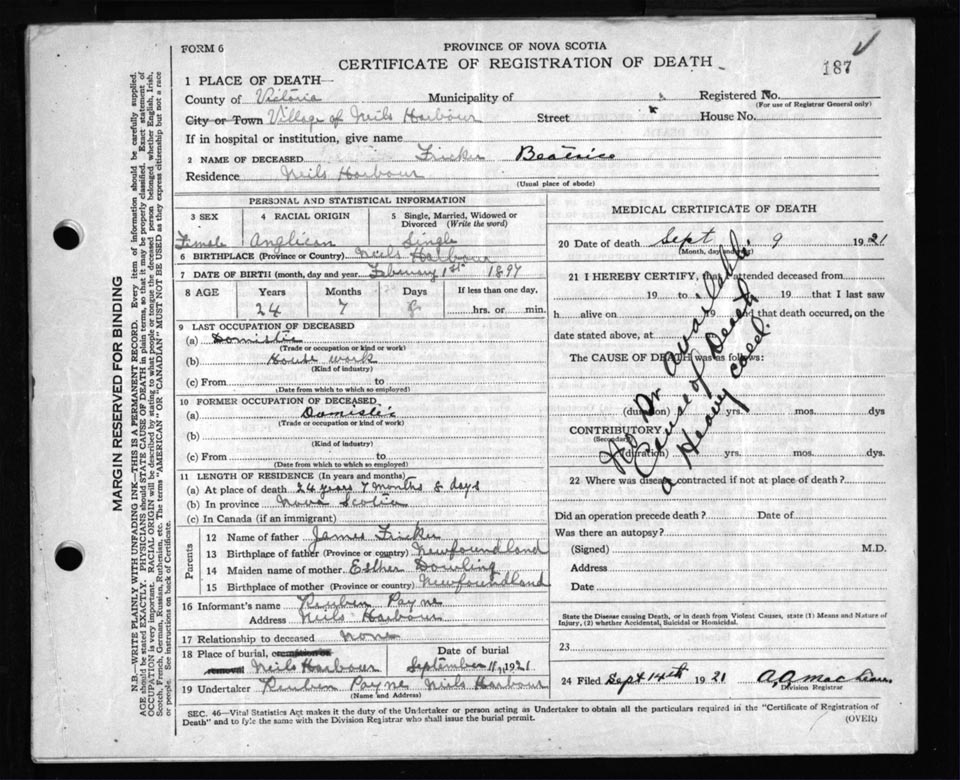 FORM 6
PROVINCE OF NOVA SCOTIA
CERTIFICATE OF REGISTRATION OF DEATH
187
1 PLACE OF DEATH—
County of Victoria Municipality of Registered No.
(For use of Registrar General only)
City or Town Village of Neils Harbour Street House No.
If in hospital or institution, give name
2 NAME OF DECEASED Fricker Beatrice
Residence Neils Harbour
(Usual place of abode)
PERSONAL AND STATISTICAL INFORMATION
3 SEX 4 RACIAL ORIGIN 5 Single, Married, Widowed or Divorced (Write the word)
Female Anglican Single
6 BIRTHPLACE (Province or Country) Neils Harbour
7 DATE OF BIRTH (month, day and year February 1st 1897
8 AGE Years Months Days If less than one day,
24 7 8 hrs. or min.
9 LAST OCCUPATION OF DECEASED
(a) Domistic
(Trade or occupation or kind or work)
(b) House work
(Kind of industry)
(c) From to
(Date from which to which so employed)
10 FORMER OCCUPATION OF DECEASED
(a) Domistic
(Trade or occupation or kind of work)
(b)
(Kind of industry)
(c) From to
(Date from which to which so employed)
11 LENGTH OF RESIDENCE (In years and months)
(a) At place of death 24 years 7 months 8 days
(b) In province Nova Scotia
(c) In Canada (if an immigrant)
Parents
12 Name of father James Fricker
13 Birthplace of father (Province or country) Newfoundland
14 Maiden name of mother Esther Dowling
15 Birthplace of mother (Province or country) Newfoundland
16 Informant's name Reuben Payne
Address Neils Harbour
17 Relationship to deceased none
18 Place of burial, cremation or Date of burial
removal Neils Harbour September 11, 1921
19 Undertaker Reuben Payne Neils Harbour
(Name and Address)
MEDICAL CERTIFICATE OF DEATH
20 Date of death Sept 9 1921
(Month, day and
21 I HEREBY CERTIFY, that I attended deceased from
19 to 19 that I last saw
h alive on 19 and that death occurred, on the
date stated above, at
The CAUSE OF DEATH was as follows:
No Dr available
Cause of Death
a Heavy cold.
(duration) yrs. mos. dys
CONTRIBUTORY
(Secondary)
(duration) yrs. mos. dys.
22 Where was disease contracted if not at place of death?
Did an operation precede death? Date of
Was there an autopsy?
(Signed) M.D.
Address
Date
State the Disease causing Death, or in death from Violent Causes, state (1) Means and Nature of
Injury, (2) whether Accidental, Suicidal or Homicidal.
23
24 Filed Sept 14th 1921 A A MacLean
Division Registrar
SEC. 46—Vital Statistics Act makes it the duty of the Undertaker or person acting as Undertaker to obtain all the particulars required in the "Certificate of Registration of
Death" and to fyle the same with the Division Registrar who shall issue the burial permit.
(OVER)
MARGIN RESERVED FOR BINDING
N.B.—WRITE PLAINLY WITH UNFADING INK—THIS IS A PERMANENT RECORD. Every item of information should be carefully supplied.
AGE should be stated EXACTLY. PHYSICIANS should STATE CAUSE OF DEATH in plain terms, so that it may be properly classified. Exact statement of
OCCUPATION is very important. RACIAL ORIGIN will be described by stating to what people or tongue the deceased person belonged whether English, Irish,
Scotch, French, German, Russian, Ruthenian, etc. The terms "AMERICAN" OR "CANADIAN" MUST NOT BE USED as they express citizenship but not a race
or people. See instructions on back of Certificate.